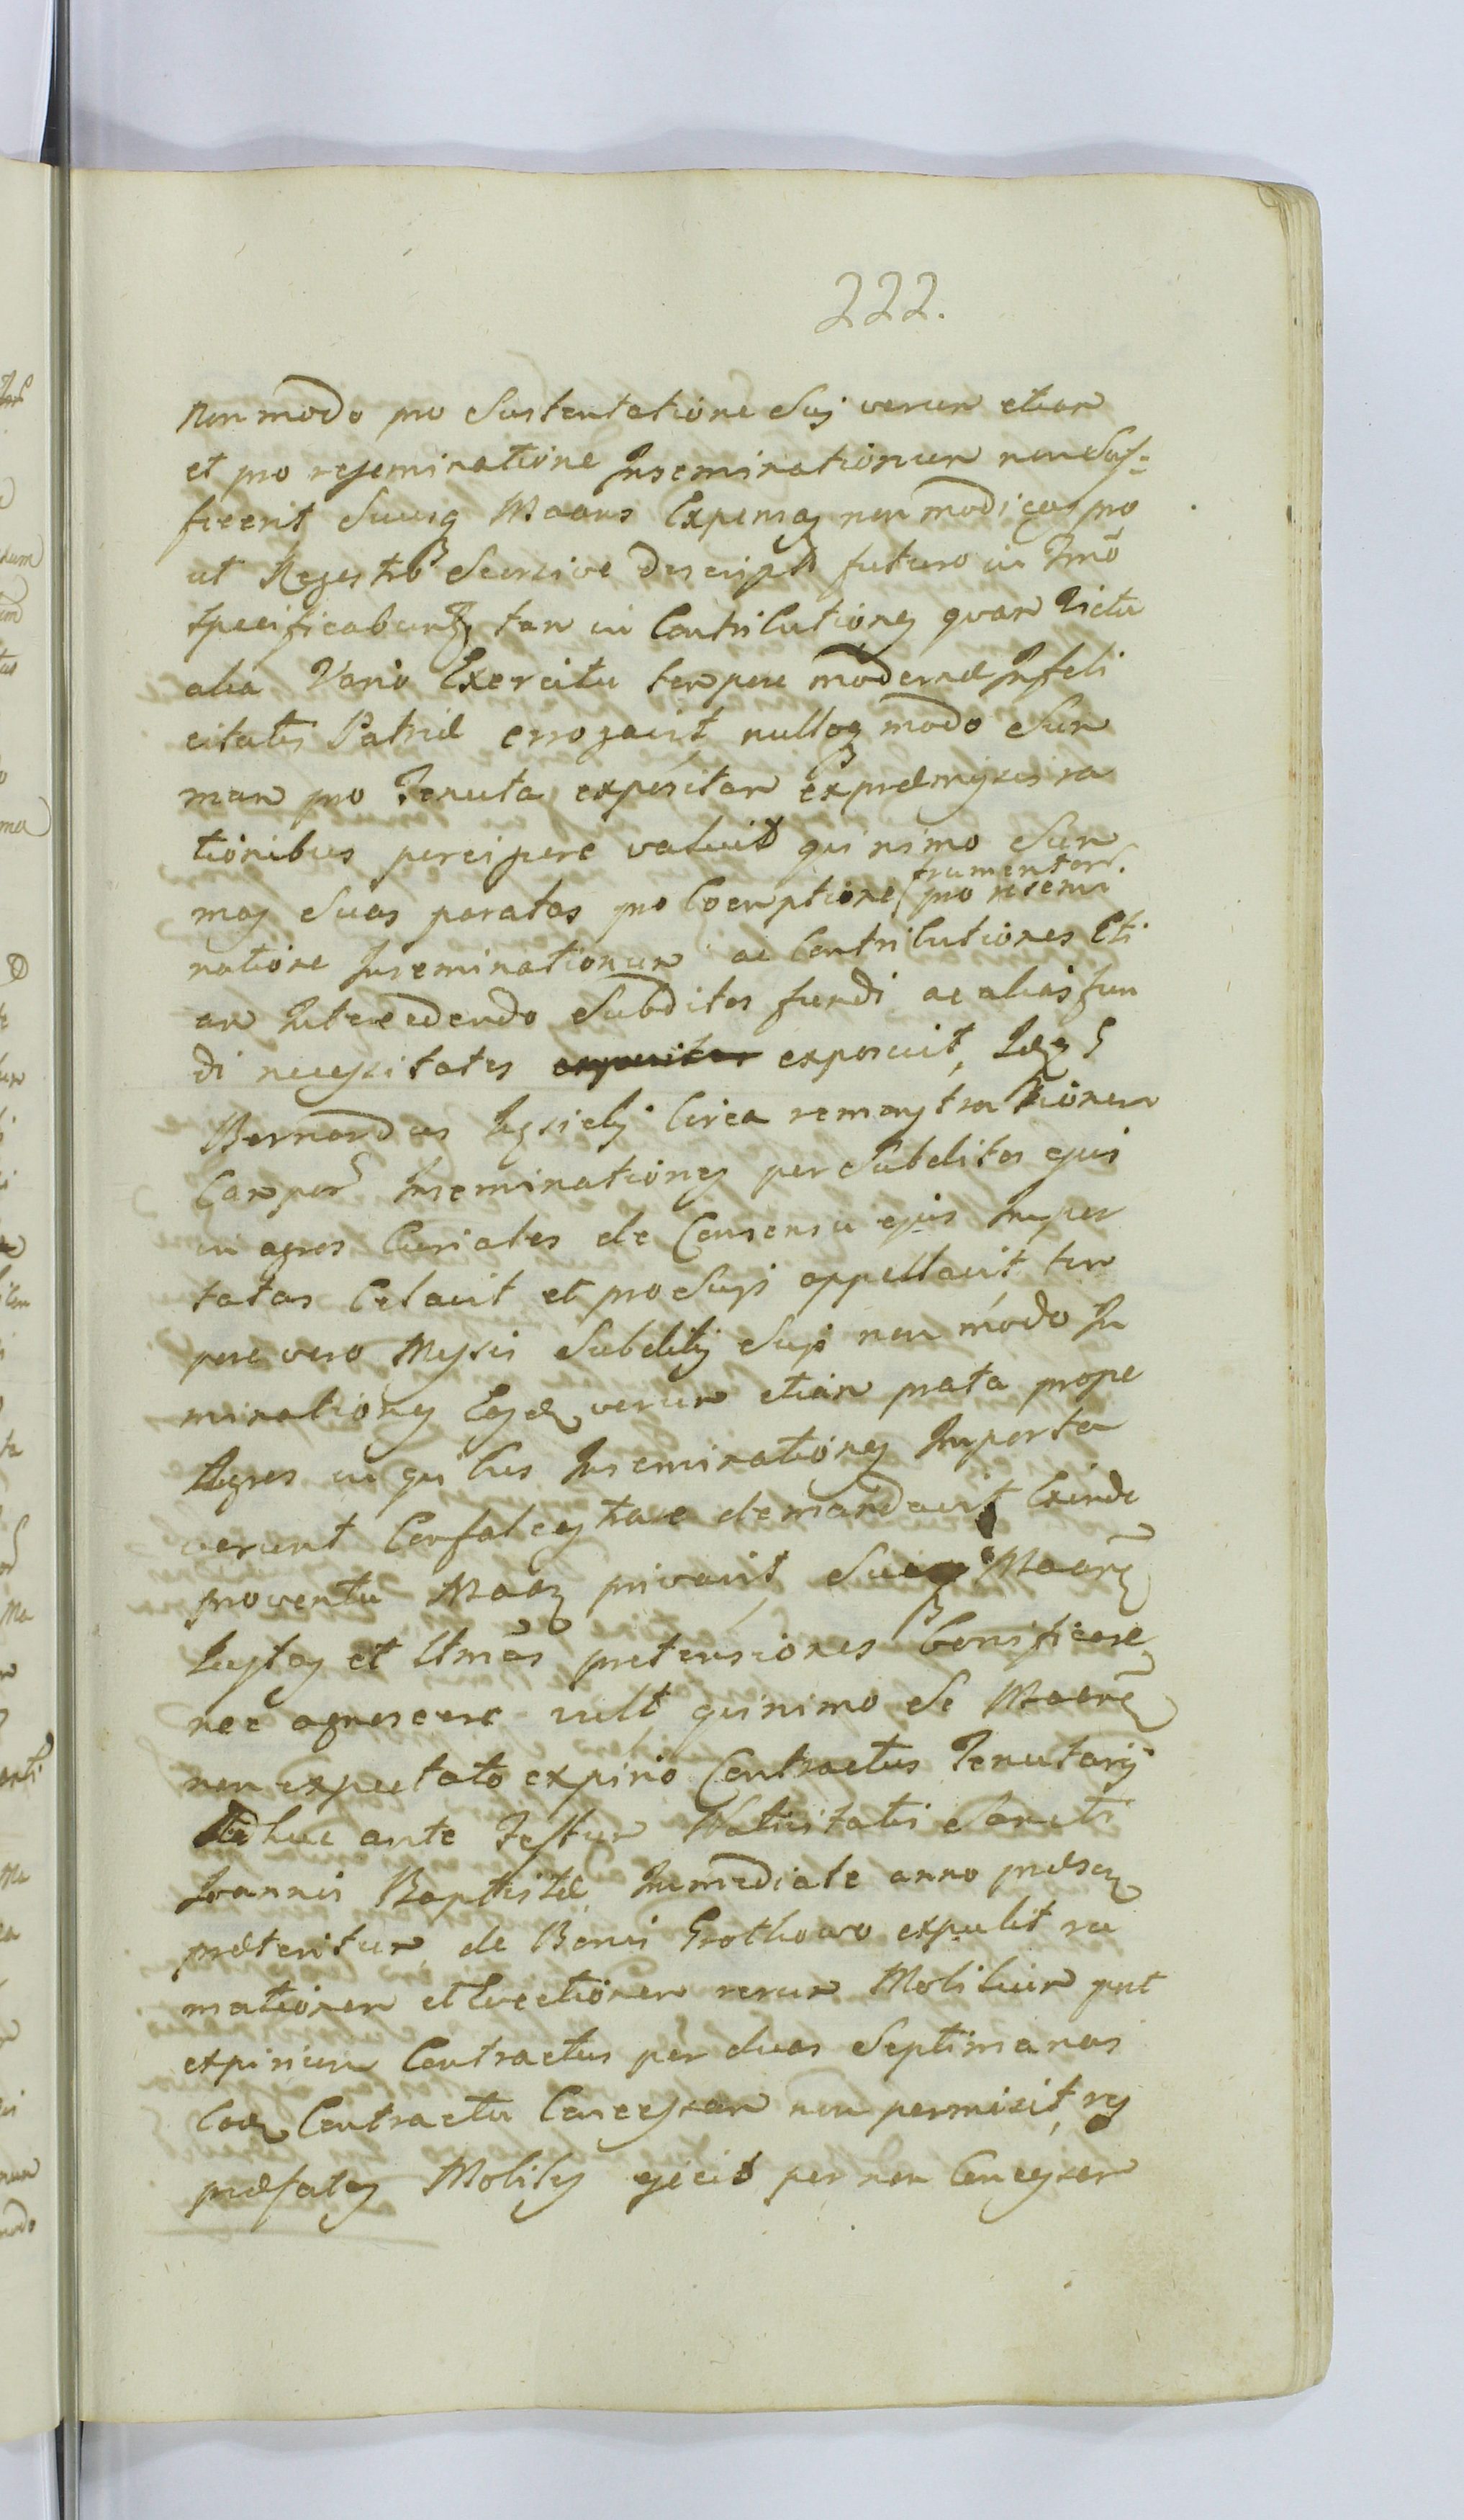 222.
non modo pro Sustentatione Suj verum etiam
et pro reseminatione Inseminationum non Suf=
fecerit Suasq Maans Expensas non modicas pro
ut Regestro Seorsive descripto futuro in Tmo
specificabuntr, tam in Contributiones quam Victu
alia Vario Exercitu tempore modernæ Infeli
citatis Patriæ errogavit, nulloq modo Sum
mam pro Tenuta expositam ex præmissis ra
tionibus percipere valuit quinimo Sum
mas Suas paratas pro Coemptione frumentor. pro resemi
natione Inseminationum ac Contributiones Eti
am Intercedendo Subditos fundi ac alias fun
di necessitates exposuit, Idq
Bernardus circa remonstrationem
Camporum Inseminationes per Subditos ejus
in agros Curiales de Consensu ejus Impor
tatas Celavit et pro Suis appellavit, tem
pore vero Messis Subditis Suis non modo In
minationes Easdem verum etiam prata prope
Agros in quibus Inseminationes Importa
verunt Confalcastrare demandavit Exinde
proventu Maam privavit, Maane
Iustas et Ltmas pretensiones bonificare
nec agnoscere vult, quinimo Se Maane
non expectato expirio Contractus Tenutarij
Adhuc ante Festum Nativitatis Sancti
Joannis Baptistæ Immediate anno præsen
præteritum, de Bonis Grothowo expulit ra
mationem et Evectionem rerum Mobilium post
expirium Contractus per duas Septimanas
Eodem Contractu Concessam non permisit, res
præfatas Mobiles ejecit per non Concessam